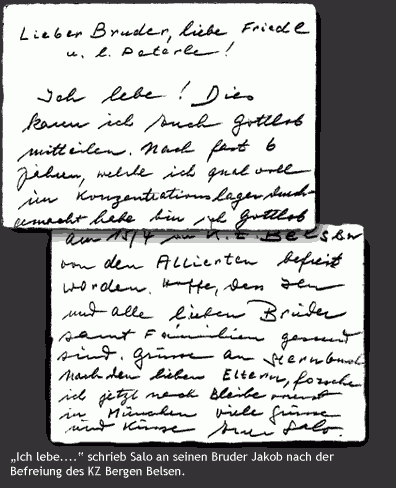 Lieber Bruder, liebe Friedl
u. l. Peterle!
Ich lebe! Dies
kann ich Euch Gottlob
mitteilen. Nach fast 6
Jahren, welche ich qualvoll
im Konzentrationslager durch-
gemacht habe bin ich Gottlob
am 15/4 im K.Z. BELSEN
von den Alliierten befreit
worden. Hoffe, dass
und alle lieben Brüder
samt Familien gesund
sind. Grüsse an
nach den lieben Eltern, forsche
ich jetzt nach bleibe
in München viele Grüsse
und Küsse Euer Salo.
„Ich lebe....“ schrieb Salo an seinen Bruder Jakob nach der
Befreiung des KZ Bergen Belsen.